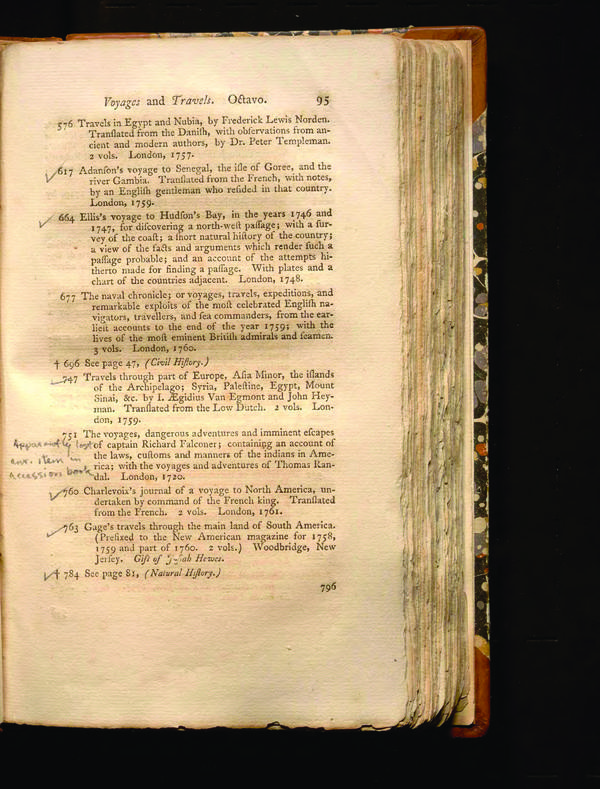 Voyages and Travels. Octavo. 95
576 Travels in Egypt and Nubia, by Frederick Lewis Norden.
Tranſlated from the Daniſh, with obſervations from an-
cient and modern authors, by Dr. Peter Templeman.
2 vols. London, 1757.
617 Adanſon's voyage to Senegal, the iſle of Goree, and the
river Gambia. Tranſlated from the French, with notes,
by an Engliſh gentleman who reſided in that country.
London, 1759.
664 Ellis's voyage to Hudſon's Bay, in the years 1746 and
1747, for diſcovering a north-weſt paſſage; with a ſur-
vey of the coaſt; a ſhort natural hiſtory of the country;
a view of the facts and arguments which render ſuch a
paſſage probable; and an account of the attempts hi-
therto made for finding a paſſage. With plates and a
chart of the countries adjacent. London, 1748.
677 The naval chronicle; or voyages, travels, expeditions, and
remarkable exploits of the moſt celebrated Engliſh na-
vigators, travellers, and ſea commanders, from the ear-
lieſt accounts to the end of the year 1759; with the
lives of the moſt eminent Britiſh admirals and ſeamen.
3 vols. London, 1760.
† 696 See page 47, (Civil Hiſtory.)
747 Travels through part of Europe, Aſia Minor, the iſlands
of the Archipelago; Syria, Paleſtine, Egypt, Mount
Sinai, &c. by I. Ægidius Van Egmont and John Hey-
man. Tranſlated from the Low Dutch. 2 vols. Lon-
don, 1759.
751 The voyages, dangerous adventures and imminent eſcapes
of captain Richard Falconer; containing an account of
the laws, cuſtoms and manners of the indians in Ame-
rica; with the voyages and adventures of Thomas Ran-
dal. London, 1720.
Apparently lost
item in
Accession book
760 Charlevoix's journal of a voyage to North America, un-
dertaken by command of the French king. Tranſlated
from the French. 2 vols. London, 1761.
763 Gage's travels through the main land of South America.
(Prefixed to the New American magazine for 1758,
1759 and part of 1760. 2 vols.) Woodbridge, New
Jerſey. Gift of Hewes.
† 784 See page 81, (Natural Hiſtory.)
796